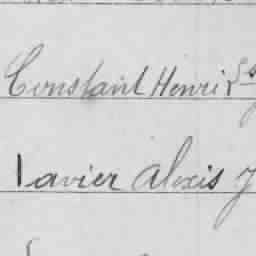 Constant Henri
Xavier Alexis J